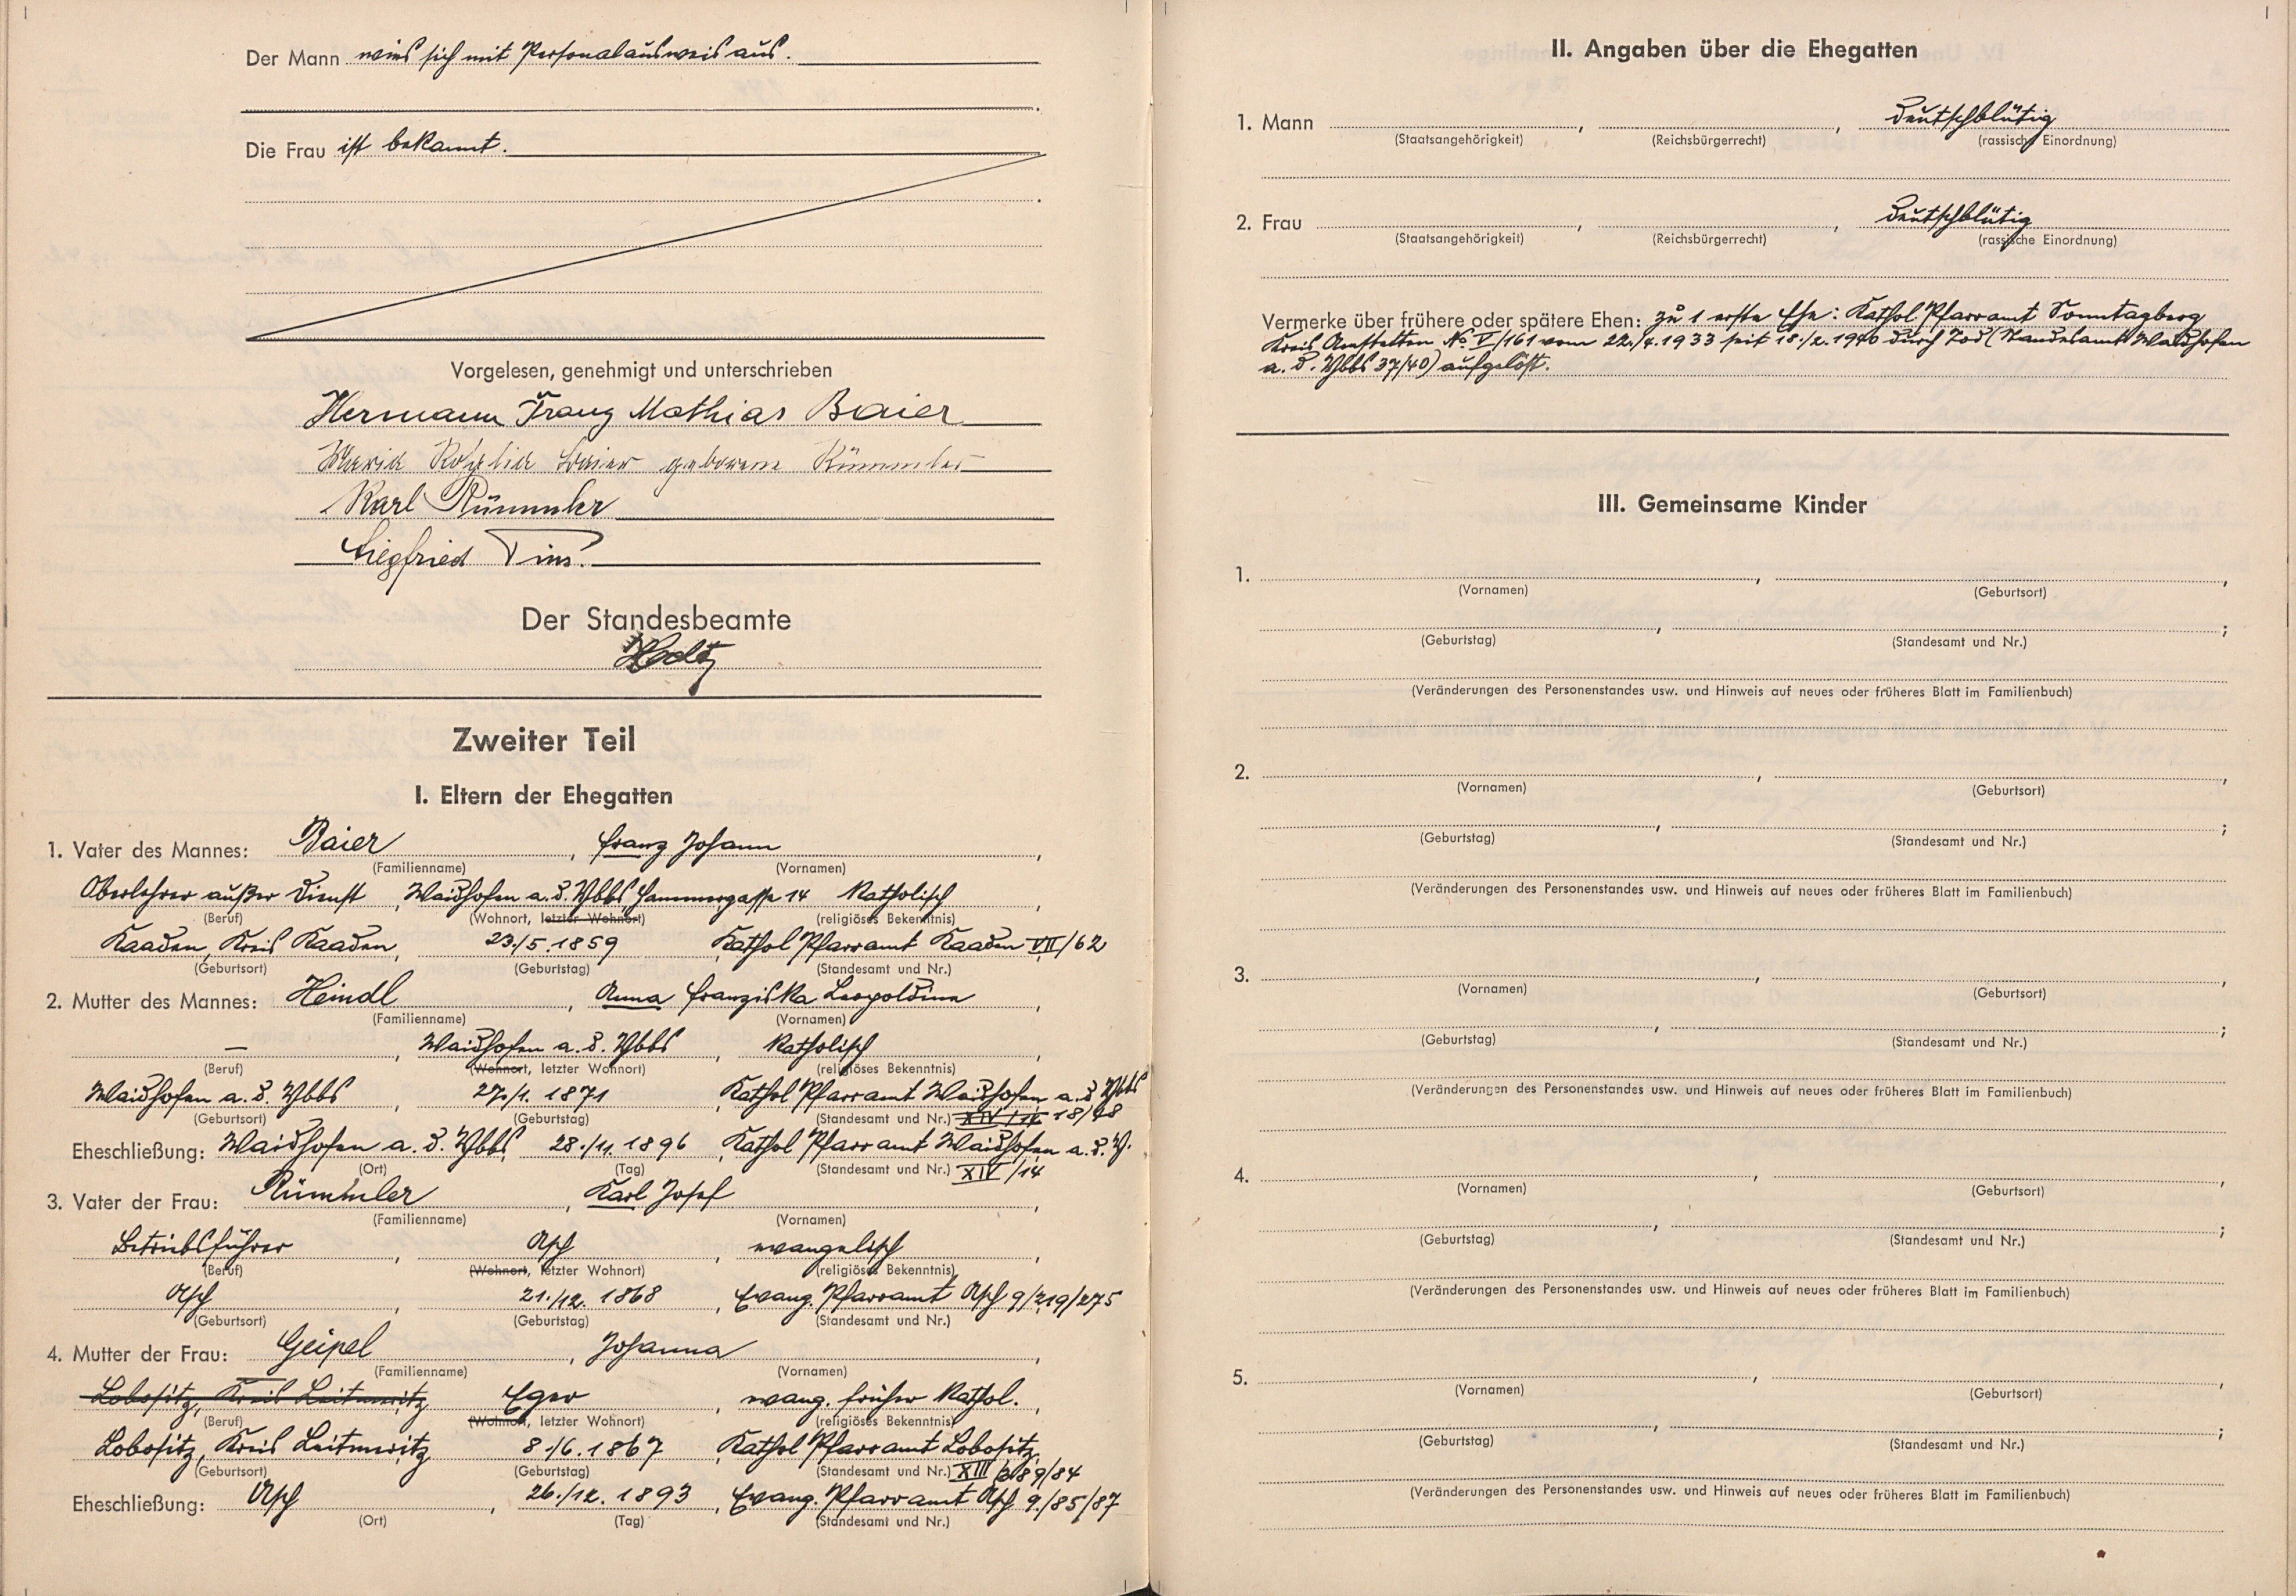 Der Mann wies sich mit Personalausweis aus.
Die Frau ist bekannt.
Vorgelesen, genehmigt und unterschrieben
Hermann Franz Mathias Baier
Maria Rosalia Baier geborene Rümmler
Karl Rümmler
Siegfried
Der Standesbeamte
Zweiter Teil
I. Eltern der Ehegatten
1. Vater des Mannes: Baier, Franz Johann,
(Familienname) (Vornamen)
Oberlehrer außer Dienst, Waidhofen a. d. Ybbs, Hammergasse 14 Katholisch,
(Beruf) (Wohnort, letzter Wohnort) (religiöses Bekenntnis)
Kaaden, Kreis Kaaden, 23./5. 1859, Kathol Pfarramt Kaaden VII/62
(Geburtsort) (Geburtstag) (Standesamt und Nr.)
2. Mutter des Mannes: Heindl, Anna Franziska Leopoldine,
(Familienname) (Vornamen)
—, Waidhofen a. d. Ybbs, Katholisch,
(Beruf) (Wohnort, letzter Wohnort) (religiöses Bekenntnis)
Waidhofen a. d. Ybbs, 27./1. 1871, Kathol Pfarramt Waidhofen a. d. Ybbs
(Geburtsort) (Geburtstag) (Standesamt und Nr.) XIV/14 18/48
Eheschließung: Waidhofen a. d. Ybbs, 28./11. 1896, Kathol Pfarramt Waidhofen a. d. Y.
(Ort) (Tag) (Standesamt und Nr.) XIV/14
3. Vater der Frau: Rümmler, Karl Josef,
(Familienname) (Vornamen)
Betriebsführer, Asch, evangelisch,
(Beruf) (Wohnort, letzter Wohnort) (religiöses Bekenntnis)
Asch, 21./12. 1868, Evang. Pfarramt Asch 9/219/275
(Geburtsort) (Geburtstag) (Standesamt und Nr.)
4. Mutter der Frau: Geipel, Johanna,
(Familienname) (Vornamen)
Lobositz, Kreis Leitmeritz, Eger, evang. früher Kathol.,
(Beruf) (Wohnort, letzter Wohnort) (religiöses Bekenntnis)
Lobositz, Kreis Leitmeritz, 8./6. 1867, Kathol Pfarramt Lobositz
(Geburtsort) (Geburtstag) (Standesamt und Nr.) XIII/289/84
Eheschließung: Asch, 26./12. 1893, Evang. Pfarramt Asch 9./85/87
(Ort) (Tag) (Standesamt und Nr.)
II. Angaben über die Ehegatten
1. Mann , , deutschblütig
(Staatsangehörigkeit) (Reichsbürgerrecht) (rassische Einordnung)
2. Frau , , deutschblütig
(Staatsangehörigkeit) (Reichsbürgerrecht) (rassische Einordnung)
Vermerke über frühere oder spätere Ehen: zu 1 erste Ehe: Kathol Pfarramt Sonntagberg
Kreis Amstetten No V/161 vom 22./4. 1933 seit 18./2. 1940 durch Tod (Standesamt Waidhofen
a. d. Ybbs 37/40) aufgelöst.
III. Gemeinsame Kinder
1. , ,
(Vornamen) (Geburtsort)
, ;
(Geburtstag) (Standesamt und Nr.)
(Veränderungen des Personenstandes usw. und Hinweis auf neues oder früheres Blatt im Familienbuch)
2. , ,
(Vornamen) (Geburtsort)
, ;
(Geburtstag) (Standesamt und Nr.)
(Veränderungen des Personenstandes usw. und Hinweis auf neues oder früheres Blatt im Familienbuch)
3. , ,
(Vornamen) (Geburtsort)
, ;
(Geburtstag) (Standesamt und Nr.)
(Veränderungen des Personenstandes usw. und Hinweis auf neues oder früheres Blatt im Familienbuch)
4. , ,
(Vornamen) (Geburtsort)
, ;
(Geburtstag) (Standesamt und Nr.)
(Veränderungen des Personenstandes usw. und Hinweis auf neues oder früheres Blatt im Familienbuch)
5. , ,
(Vornamen) (Geburtsort)
, ;
(Geburtstag) (Standesamt und Nr.)
(Veränderungen des Personenstandes usw. und Hinweis auf neues oder früheres Blatt im Familienbuch)